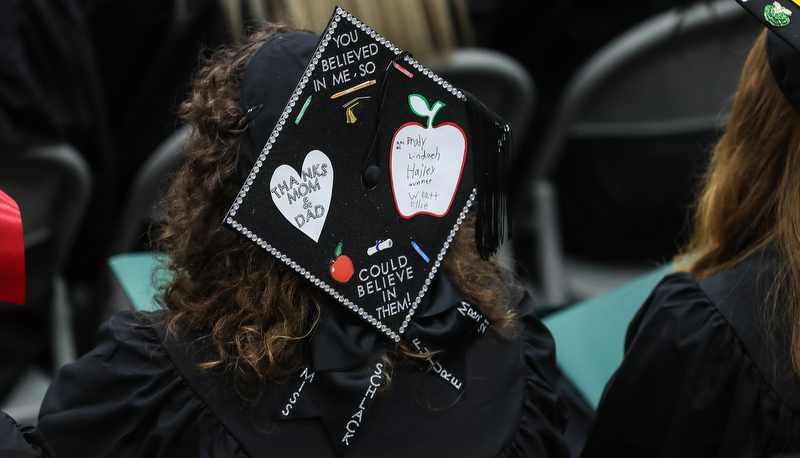 YOU
BELIEVED
IN ME, SO
THANKS
MOM
&
DAD
Brody
Lindach
Hailey
Gunner
Wyatt
Ellie
COULD
BELIEVE
IN
THEM!
MISS
SCHACK
FUTURE
MRS.